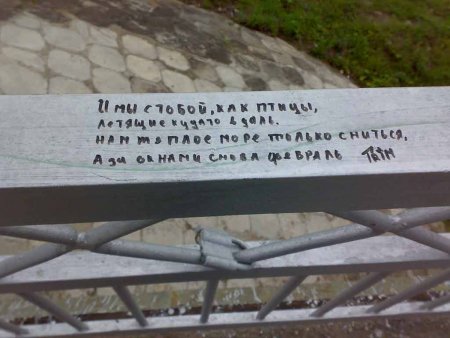 И мы с тобой, как птицы,
Летящие кудато вдаль.
Нам теплое море только сниться,
А за окнами снова февраль